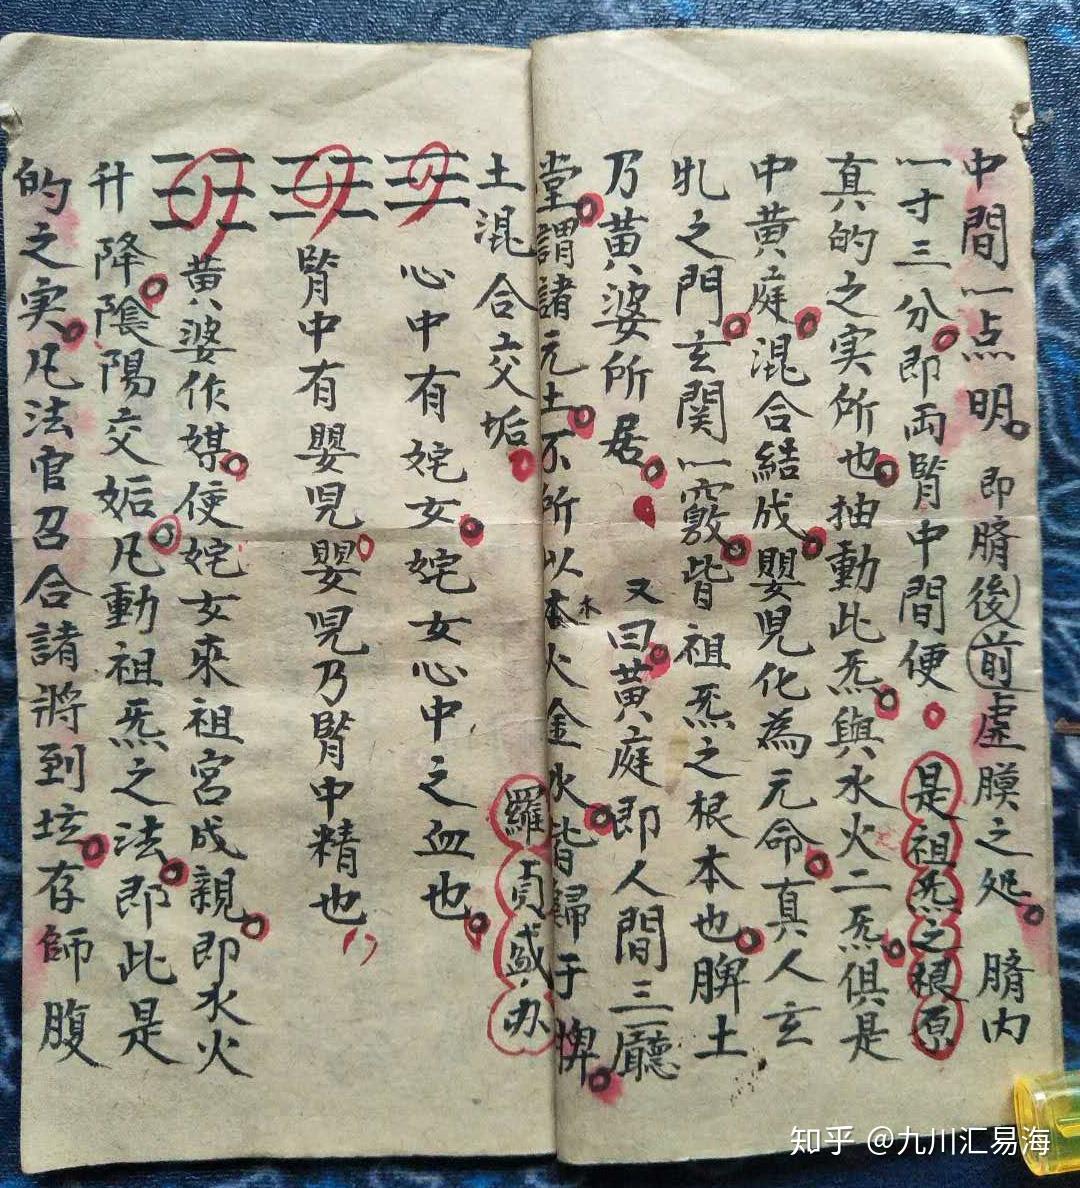 中間一点明。即臍後前虛膜之処。臍内
一寸三分。即両腎中間便。是祖炁之根原
真的之实所也。抽動此炁。與水火二炁。俱是
中黄庭。混合結成。嬰児化為元命。真人玄
牝之門。玄関一竅。皆祖炁之根本也。脾土
乃黄婆所居。又曰。黄庭即人間三廳
堂。謂諸元土。不所以本木火金水。皆歸于脾。
土混合交垢。羅貢盛办
心中有姹女。姹女心中之血也。
腎中有嬰児。嬰児乃腎中精也
黄婆作媒。使姹女來祖宮成親。即水火
升降。陰陽交姤。凡動祖炁之法。即此是
的之实。凡法官召合諸將到坛。存師腹
知乎 @九川汇易海